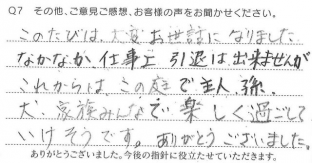 Q7 その他、ご意見ご感想、お客様の声をお聞かせください。
このたびは、大変お世話になりました
なかなか仕事上 引退は出来ませんが
これからは、この庭で主人、孫、
犬、家族みんなで楽しく過ごして
いけそうです。ありがとうございました。
ありがとうございました。今後の指針に役立たせていただきます。